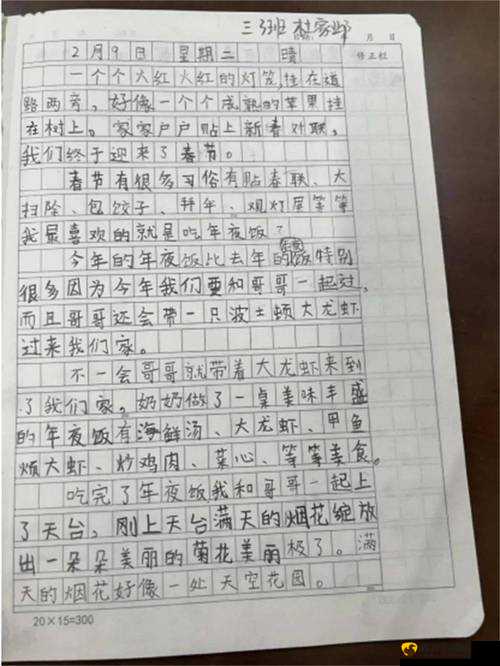 三3班 杜家邺
月 日
2月9日 星期二 晴 修正栏
一个个火红火红的灯笼,挂在道
路两旁,好像一个个成熟的苹果挂
在树上。家家户户贴上新春对联,
我们终于迎来了春节。
春节有很多习俗有贴春联、大
扫除、包饺子、拜年、观灯展等等
我最喜欢的就是吃年夜饭?
今年的年夜饭比去年的年夜饭特别
很多因为今年我们要和哥哥一起过,
而且哥哥还会带一只波士顿大龙虾
过来我们家。
不一会哥哥就带着大龙虾来到
了我们家。奶奶做了一桌美味丰盛
的年夜饭有海鲜汤、大龙虾、甲鱼
烦大虾、炒鸡肉、菜心、等等美食。
吃完了年夜饭我和哥哥一起上
了天台,刚上天台满天的烟花绽放
出一朵朵美丽的菊花美丽极了。满
天的烟花好像一处天空花园。
20×15=300